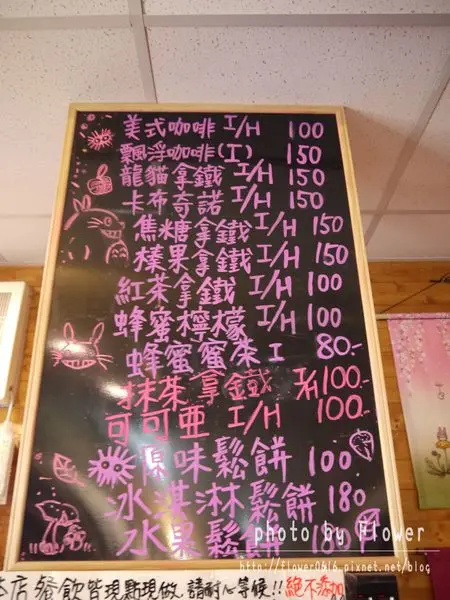 美式咖啡 I/H 100
飄浮咖啡(I) 150
龍貓拿鐵 I/H 150
卡布奇諾 I/H 150
焦糖拿鐵 I/H 150
榛果拿鐵 I/H 150
紅茶拿鐵 I/H 100
蜂蜜檸檬 I/H 100
蜂蜜蜜茶 I 80.-
抹茶拿鐵 I/H 100.-
可可亜 I/H 100.-
原味鬆餅 100
冰淇淋鬆餅 180
水果鬆餅 180
photo by Flower
http://flower0616.pixnet.net/blog
本店餐飲皆現點現做、請耐心等候!! 絕不添加